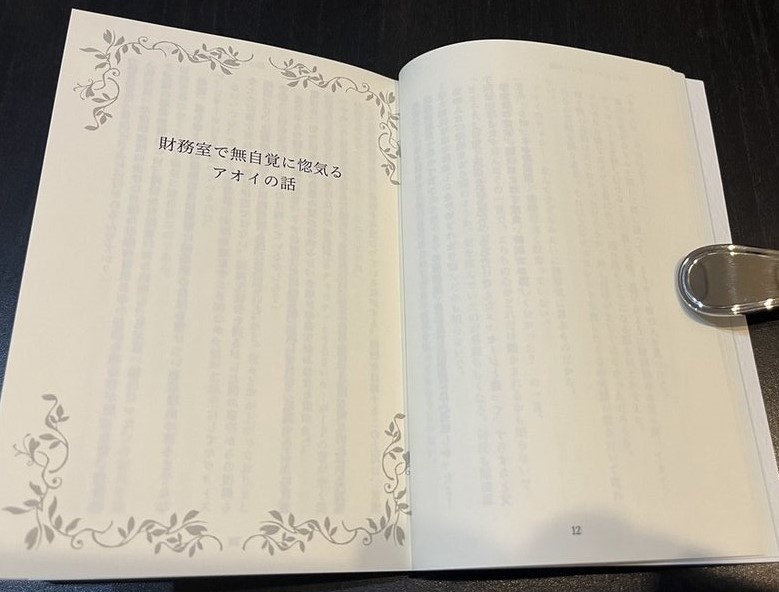 財務室で無自覚に惚気る
アオイの話
12